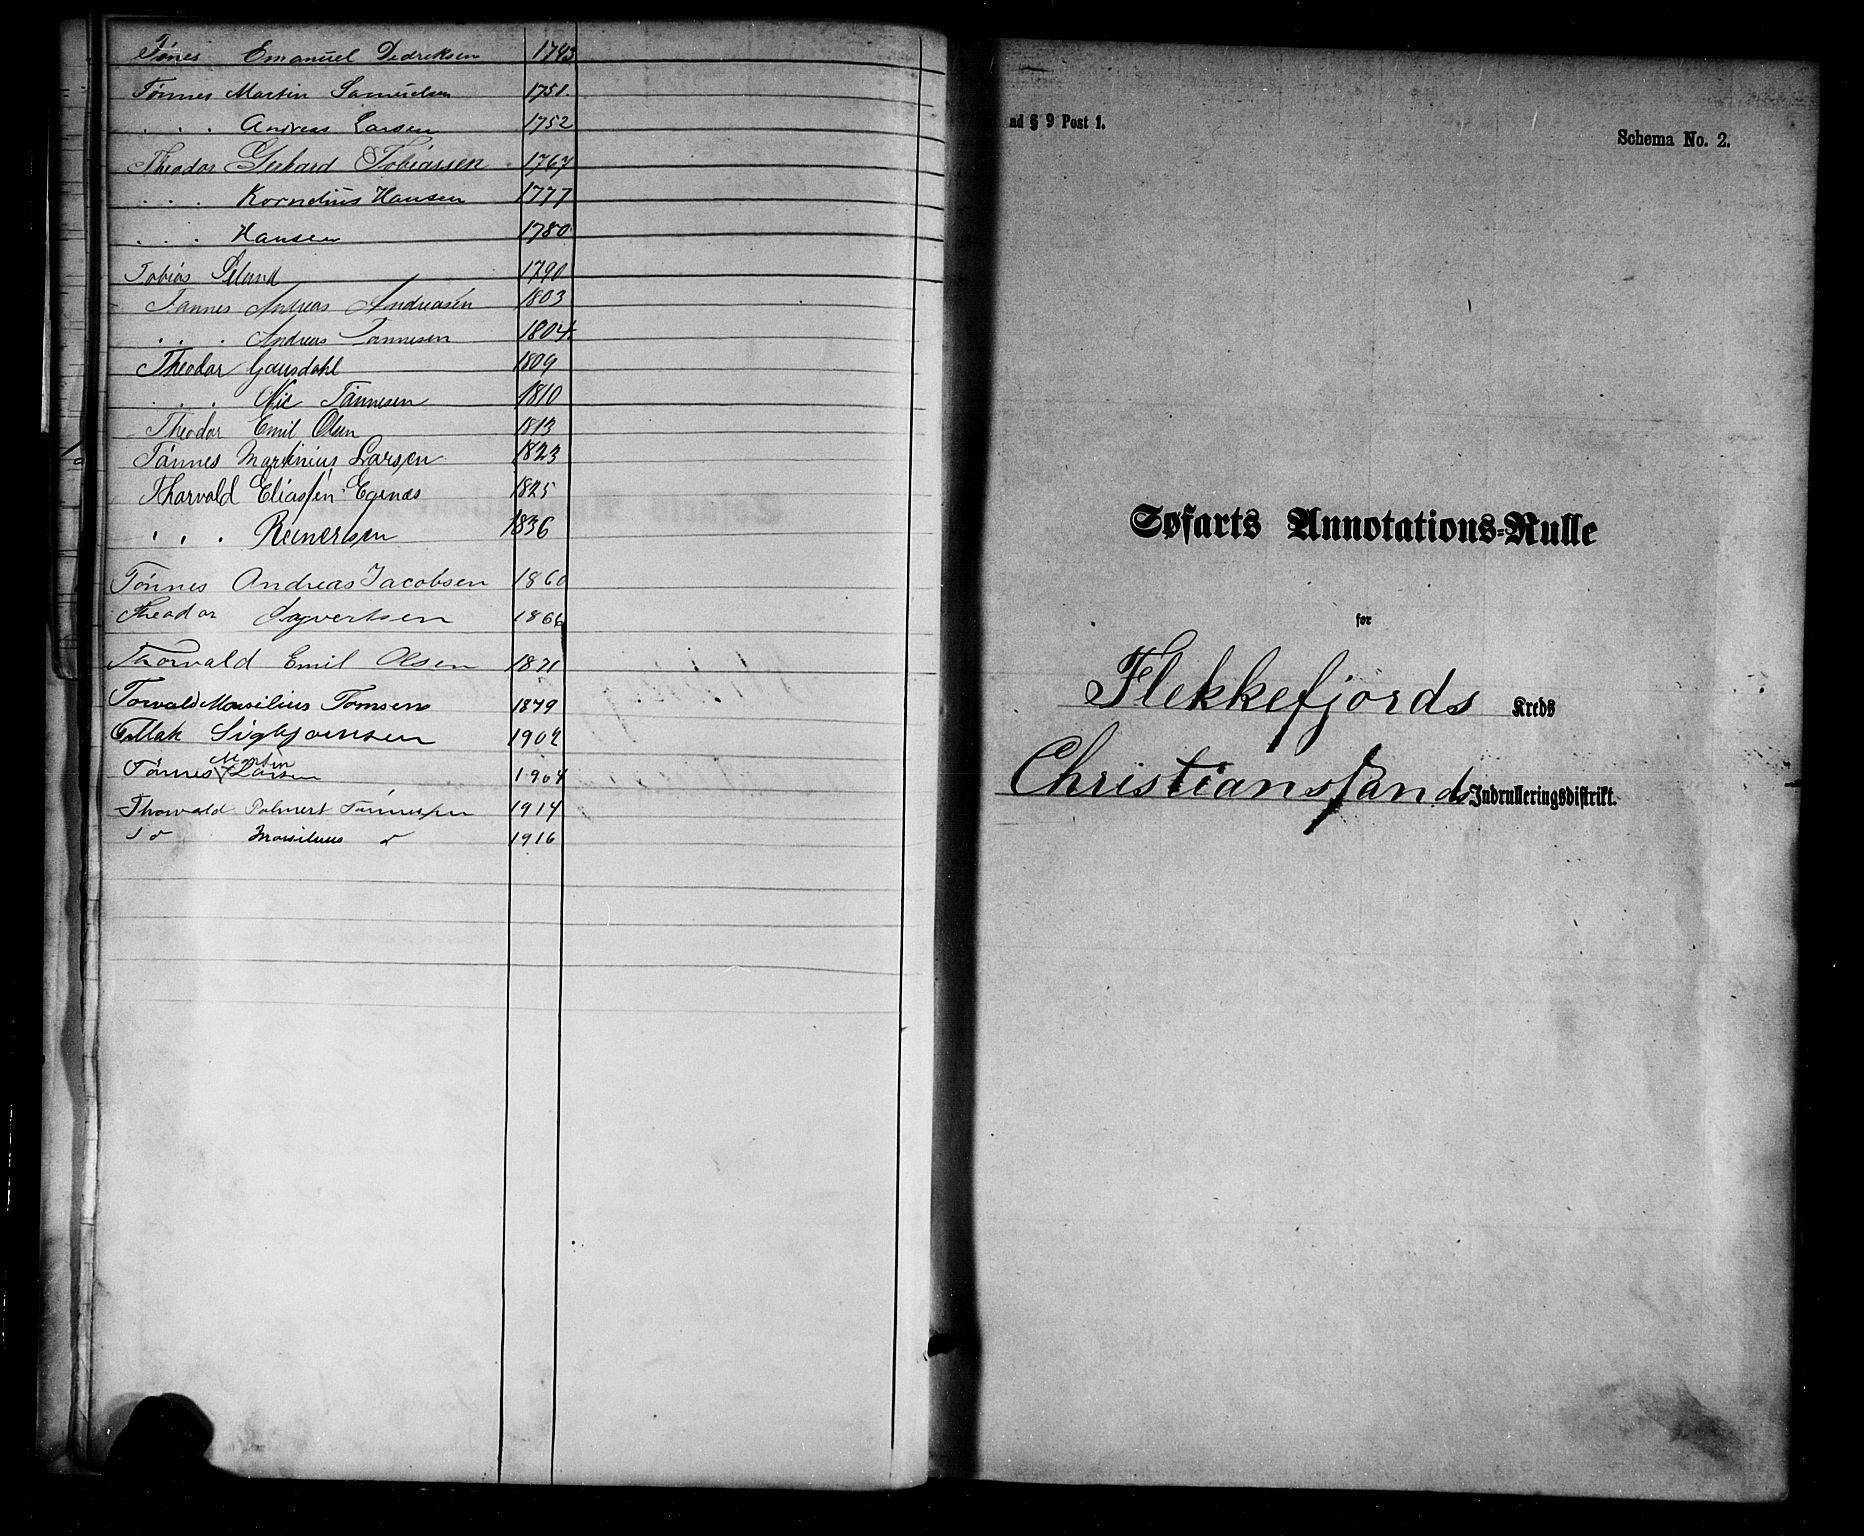 Tønes Emanuel Dedreksen 1743
Tønnes Martin Samuelsen 1751.
. . . Andreas Larsen 1752
Theodor Gerhard Tobiassen 1767
. . . Kornelius Hansen 1777
. . . Hansen 1780
Tobias 1790
Tønnes Andreas Andreasen 1803
. . . Andreas Tønnesen 1804
Theodor Gausdahl 1809
. . . Nic Tønnesen 1810
Theodor Emil Olsen 1813
Tønnes Martinius Larsen 1823
Thorvald Eliasſen Egenæs 1825
. . . Reinertsen 1836
Tønnes Andreas Jacobsen 1860
Theodor Sigvertsen 1866
Thorvald Emil Olsen 1871
Torvald Marsilius Tomsen 1879
Tollak Sigbjørnsen 1902
Tønnes Martin Larsen 1904
Thorvald Tønnesſen 1914
do Marsilius do 1916
ad § 9 Post 1.
Schema No. 2.
Søfarts Annotations-Rulle
for
Flekkefjords Kreds
Christiansſands Indrulleringsdistrikt.